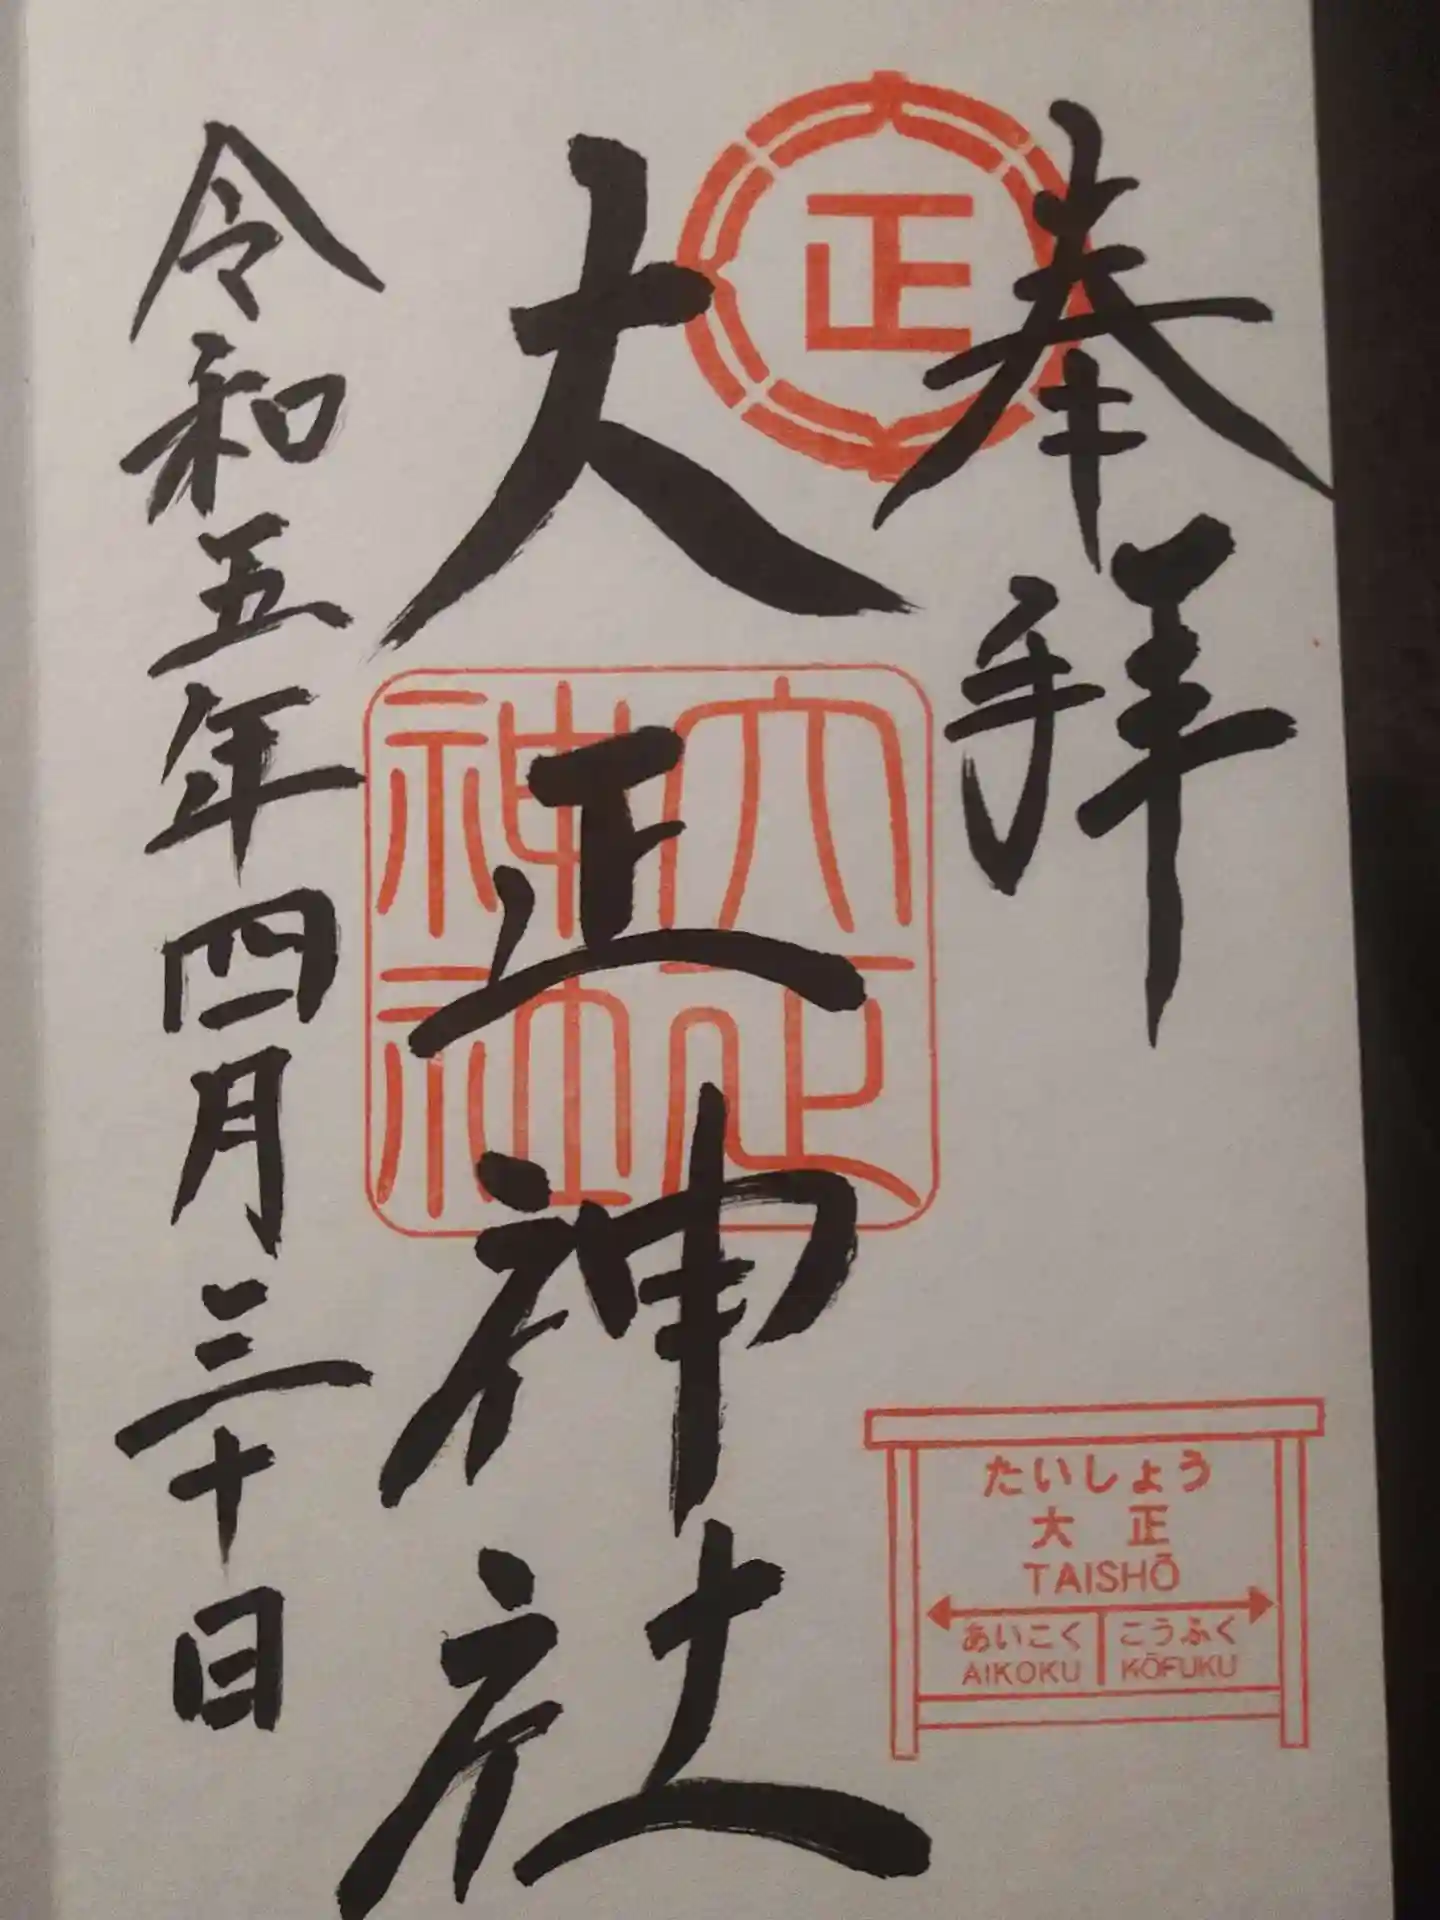 奉拝
正
大正神社
大正神社
令和五年四月三十日
たいしょう
大正
TAISHŌ
あいこく こうふく
AIKOKU KŌFUKU